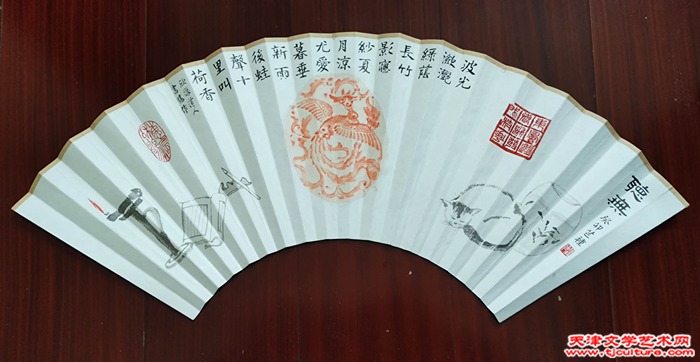 聽無
癸卯芒種
波光
瀲灩
綠蔭
長竹
影窻
紗夏
月涼
尤愛
暮垂
新雨
後蛙
聲十
里叫
荷香
天津文学艺术网
www.tjculture.com